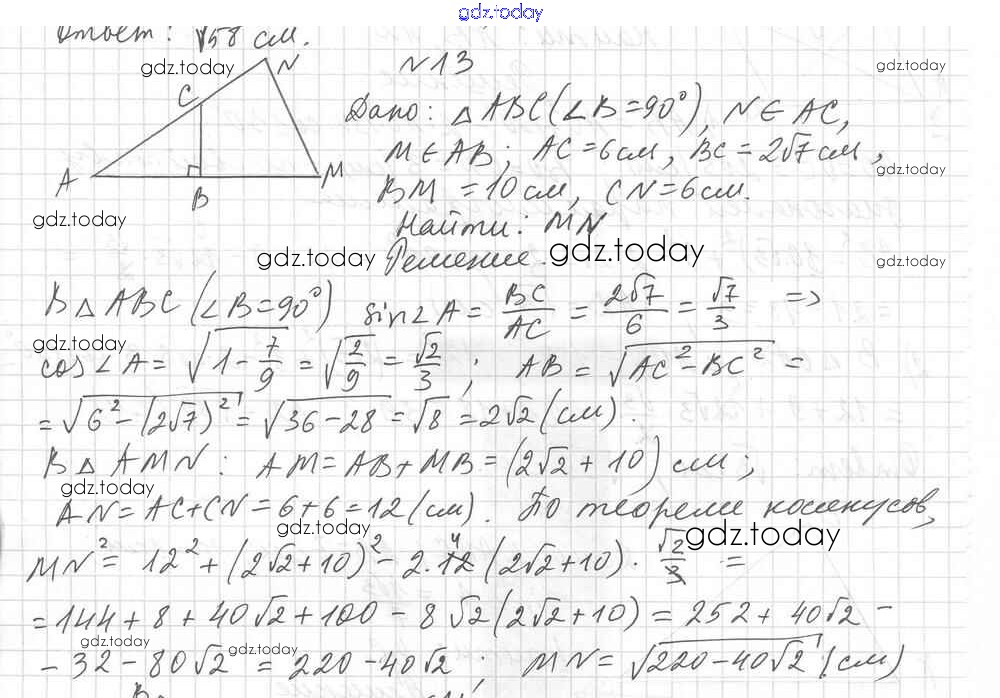 gdz.today
Ответ: √58 см.
gdz.today
N 13
gdz.today
C
N
Дано: △ ABC (∠B=90°), N ∈ AC,
A
B
M
M ∈ AB; AC=6см, BC=2√7 см,
gdz.today
BM=10см, CN=6см.
gdz.today
Найти: MN
gdz.today
Решение.
gdz.today
gdz.today
В △ ABC (∠B=90°) sin∠A = BC/AC = 2√7/6 = √7/3 =>
gdz.today
cos∠A = √(1 - 7/9) = √(2/9) = √2/3; AB = √(AC² - BC²) =
= √(6² - (2√7)²) = √(36-28) = √8 = 2√2 (см).
В △ AMN: AM = AB + MB = (2√2 + 10) см;
gdz.today
AN = AC + CN = 6 + 6 = 12 (см). По теореме косинусов,
gdz.today
gdz.today
MN² = 12² + (2√2 + 10)² - 2·12⁴ (2√2 + 10) · √2/3 =
= 144 + 8 + 40√2 + 100 - 8√2 (2√2 + 10) = 252 + 40√2 -
gdz.today
gdz.today
- 32 - 80√2 = 220 - 40√2; MN = √(220 - 40√2) (см)